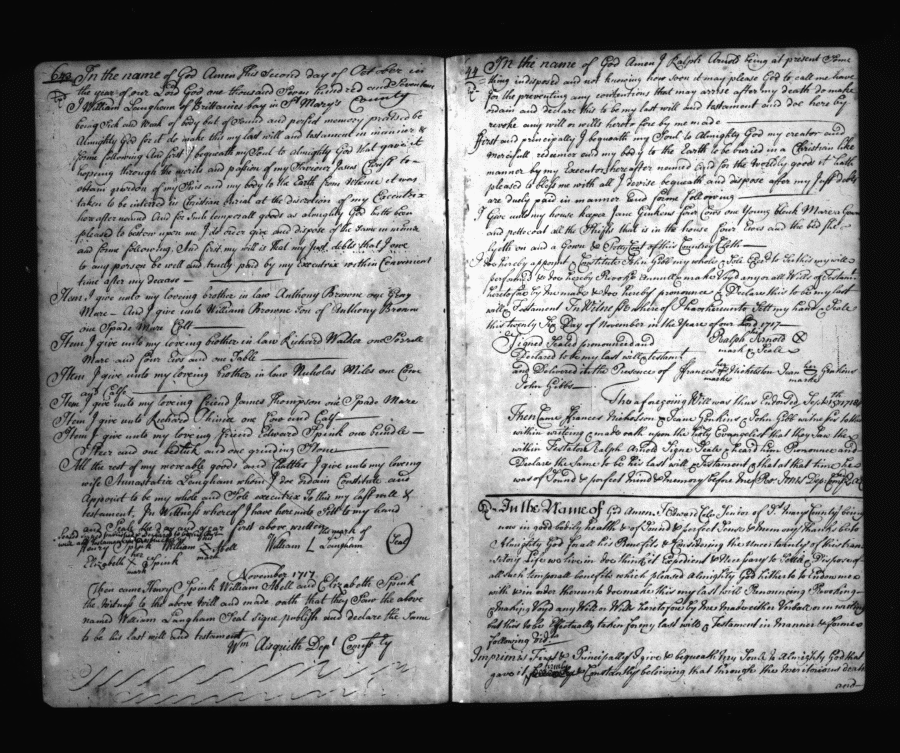 In the name of God Amen This Second day of October in
the year of our Lord God one thousand Seven hundred and Seventeen
I William Langham of Brittaines bay in St Mary's County
being Sick and Weak of body but of Sound and perfect memory praised be
Almighty God for it do make this my last will and testament in manner &
forme following And first I bequeath my Soul to Almighty God that gave it
hopeing through the merits and passion of my Saviour Jesus Christ to
obtain pardon of my Sins and my body to the Earth from whence it was
taken to be interred in Christian burial at the discretion of my Executrix
hereafter named And for Such temporall goods as almighty God hath been
pleased to bestow upon me I do order give and dispose of the Same in manner
and forme following. And first my will is that my Just debts that I owe
to any person be well and truely paid by my executrix within Convenient
time after my decease
Item I give unto my loveing brother in law Anthony Browne one Gray
Mare And I give unto William Browne Son of Anthony Browne
one Spade Mare Colt
Item I give unto my loveing brother in law Richard Walker one Sorrell
Mare and four Ews and one Table
Item I give unto my loveing brother in law Nicholas Miles one Cow
and Calfe
Item I give unto my loveing friend James Thompson one Spade Mare
Item I give unto Richard Chince one Cow and Calf
Item I give unto my loveing friend Edward Spink one bundle
Steer and one bedtick and one grinding Stone
All the rest of my moveable goods and Chattles I give unto my loving
wife Annastatia Langham whom I doe ordain Constitute and
Appoint to be my whole and Sole executrix to this my last will &
testament. In Wittness whereof I have hereunto Sett to my hand
and Seale the day and year first above written
Henry Spink William Abell
mark
William L Langham
mark of
Seal
Elizabeth X Spink
her
mark
November 1717
Then came Henry Spink William Abell and Elizabeth Spink
the wittness to the above will and made oath that they Saw the above
named William Langham Seal Signe publish and declare the Same
to be his last will and testament
Wm Aisquith Dept Comissry
44 In the name of God Amen I Ralph Arnold being at present Some
thing indisposed and not knowing how Soon it may please God to call me hence
for the preventing any contentions that may arrise after my death do make
ordain and declare this to be my last will and testament and doe here by
revoke any will or wills heretofore by me made
First and principally I bequeath my Soul to Almighty God my creator and
mercifull redeemer and my body to the Earth to be buried in a Christian like
manner by my Executor hereafter named And for the worldly goods it hath
pleased to bless me with all I devise bequeath and dispose after my Just debts
are duely paid in manner and forme following
I Give unto my house keeper Jane Jenkins four Cows one Young black Mare a Gown
and pettecoat all the things that is in the house four Ewes and the bed she
lyeth on and a Gown & Pettycoat of this Countrey Cloth
I doe hereby appoint & Constitute John Gibb my whole & Sole Exor to see this my will
performed & doe hereby Revoke annull & make Voyd any or all Wills or Testamts
heretofore by me made & doe hereby pronounce & Declare this to be my last
will & Testament In Witness whereof I have hereunto Sett my hand & Seale
this twenty Day of November in the Year of our Lord 1717
Signed Sealed pronounced and
Ralph Arnold X
mark & Seale
Declared to be my last will & testamt
and Delivered in the Presence of Frances Nicholson Jean Jenkins
her
marke
John Gibbs
The aforegoing Will was thus Endorsed
Then Came Frances Nicholson & Jane Jenkins & John Gibb
within written & made oath upon the holy Evangelist that they Saw the
within Testator Ralph Arnold Signe Seale & heard him Pronounce and
Declare the Same to be his last will & Testament & that at that time he
was of Sound & perfect mind & memory before me
In the Name of God Amen I Edward Cole Senior of St Marys County being
now in good bodily health & of Sound & perfect Sense & memory thanks be to
Almighty God for all his Benefits & Considering the uncertainty of this
Life we live in doe think it Expedient & Necessary to Settle & Dispose of
all such temporall benefits which pleased Almighty God hitherto to Endow me
with & in order thereunto doe make this my last will Renouncing Revoking
& making Voyd any Will or Wills heretofore by me made either Verball or in writing
but this to be Effectually taken for my last will & Testament in manner & forme
following
Imprimis First & Principally I give & bequeath my Soule to Almighty God that
gave it & Constantly believing that through the meritorious death
and